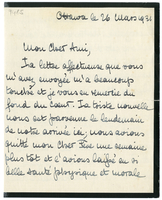 Ottawa le 26 Mars 1931
Mon Cher Ami,
La lettre affectueuse que vous
m'avez envoyée m'a beaucoup
touché et je vous en remercie du
fond du cœur. La triste nouvelle
nous est parvenue le lendemain
de notre arrivée ici; nous avions
quitté mon Cher Père une semaine
plus tôt et l'avions laissé en si
belle santé physique et morale